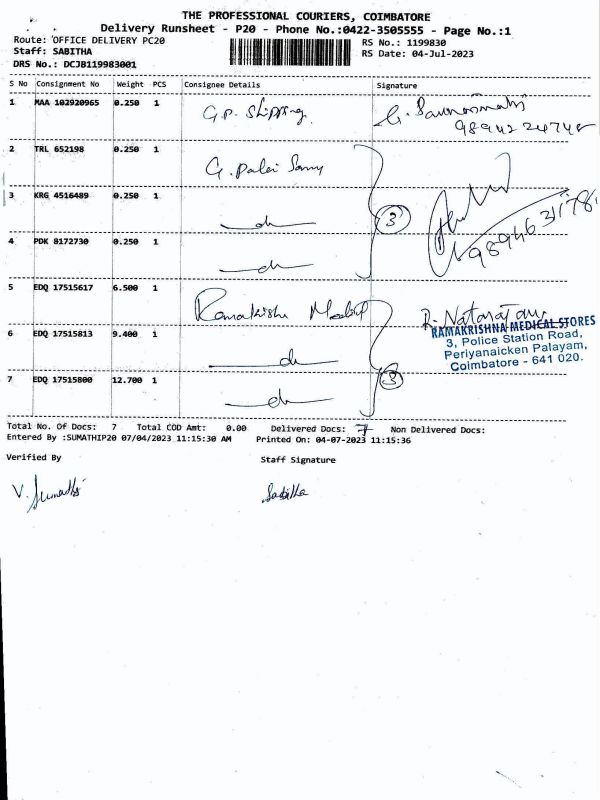 THE PROFESSIONAL COURIERS, COIMBATORE
Delivery Runsheet - P20 - Phone No.:0422-3505555 - Page No.:1
Route: OFFICE DELIVERY PC20 RS No.: 1199830
Staff: SABITHA RS Date: 04-Jul-2023
DRS No.: DCJB119983001
S No Consignment No Weight PCS Consignee Details Signature
1 MAA 102920965 0.250 1 G.P. Shipping G.
9894224748
2 TRL 652198 0.250 1 G. Palani Samy
3 KRG 4516489 0.250 1 do 3
9894631178
4 PDK 8172730 0.250 1 do
5 EDQ 17515617 6.500 1 Ramakrishna Medical R. Natarajan
RAMAKRISHNA MEDICAL STORES
3, Police Station Road,
6 EDQ 17515813 9.400 1 do Periyanaicken Palayam,
Coimbatore - 641 020.
7 EDQ 17515800 12.700 1 do 3
Total No. Of Docs: 7 Total COD Amt: 0.00 Delivered Docs: 7 Non Delivered Docs:
Entered By :SUMATHIP20 07/04/2023 11:15:30 AM Printed On: 04-07-2023 11:15:36
Verified By Staff Signature
V. Sumathi Sabitha